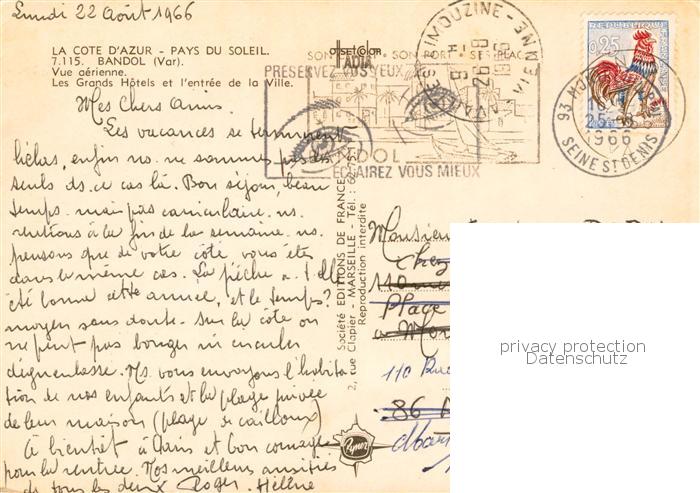 Lundi 22 Août 1966
LA COTE D'AZUR - PAYS DU SOLEIL.
7.115. BANDOL (Var).
Vue aérienne.
Les Grands Hôtels et l'entrée de la Ville.
Mes Chers Amis.
Les vacances se terminent
hélas, enfin ns. ne sommes pas les
seuls ds. ce cas là. Bon séjour, beau
temps. mais pas caniculaire. ns.
rentrons à la fin de la semaine. ns.
pensons que de votre côté vous êtes
dans le même cas. La pêche a-t-elle
été bonne cette année, et le temps?
moyen sans doute. Sur la côte on
ne peut pas bouger ni circuler
dégueulasse. Ns. vous envoyons l'habita
tion de nos enfants et la plage privée
de leur maison (plage de cailloux)
À bientôt à Paris et bon courage
pour la rentrée. Nos meilleures amitiés
de tous les deux Roger. Hélène
offset color
ADIA
SON PORT
PRESERVEZ VOS YEUX
BANDOL
ECLAIREZ VOUS MIEUX
LIMOUZINE-
VIENNE
0,25
93
25-8
1966
SEINE ST DENIS
Société EDITIONS DE FRANCE
2, rue Clapier - MARSEILLE - Tél. : 62-
Reproduction interdite
Monsieur
Chez
110
Place
à
110 Rue
86
privacy protection
Datenschutz